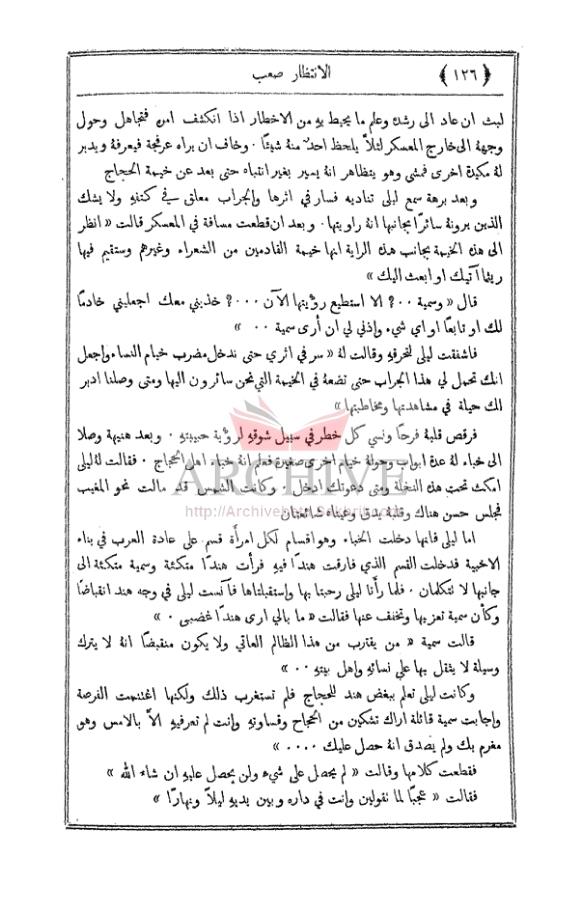 ﴿ ١٢٦ ﴾ الانتظار صعب
لبث ان عاد الى رشك وعلم ما يحيط به من الاخطار اذا انكشف امن فتجاهل وحول
وجهة الى خارج المعسكر لئلاَّ يلحظ احدٌ منهُ شيئًا . وخاف ان يراه عرفجة فيعرفهُ ويدبر
لهُ مكيدة اخرى فمشي وهو يتظاهر انهُ يسير بغير انتباه حتى بعد عن خيمة الحجاج
وبعد برهة سمع ليلى تناديه فسار في اثرها والجراب معلق في كتفهِ ولا يشك
الذين يرونهُ سائرًا بجانبها انهُ راويتها . وبعد ان قطعت مسافة في المعسكر قالت « انظر
الى هذه الخيمة بجانب هذه الراية انها خيمة القادمين من الشعراء وغيرهم وستقيم فيها
ريثما آتيك او ابعث اليك »
قال « وسمية ٠٠؟ الا استطيع رؤيتها الآن ٠٠٠؟ خذيني معك اجعليني خادمًا
لك او تابعًا او اي شيء وإذني لي ان أرى سمية ٠٠ »
فاشفقت ليلى لتحرقهِ وقالت لهُ « سر في اثري حتى ندخل مضرب خيام النساء واجعل
انك تحمل لي هذا الجراب حتى تضعهُ في الخيمة التي نحن سائرون اليها ومتى وصلنا ادبر
لك حيلة في مشاهدتها ومخاطبتها »
فرقص قلبهُ فرحًا ونسي كل خطر في سبيل شوقهِ لرؤية حبيبتهِ . وبعد هنيهة وصلا
الى خباء لهُ عدة ابواب وحولهُ خيام اخرى صغيرة فعلم انهُ خباء اهل الحجاج . فقالت لهُ ليلى
امكث تحت هذه النخلة ومتى دعوتك ادخل . وكانت الشمس قد مالت نحو المغيب
فجلس حسن هناك وقلبهُ يدق وعيناه شائعتان
اما ليلى فانها دخلت الخباء وهو اقسام لكل امرأة قسم على عادة العرب في بناء
الاخبية فدخلت القسم الذي فارقت هندًا فيهِ فرأت هندًا متكئة وسمية متكئة الى
جانبها لا تتكلمان . فلما رأتا ليلى رحبتا بها واستقبلتاها فآنست ليلى في وجه هند انقباضًا
وكأن سمية تعزيها وتخفف عنها فقالت « ما بالي ارى هندًا غضبى . »
قالت سمية « من يقترب من هذا الظالم العاتي ولا يكون منقبضًا انهُ لا يترك
وسيلة لا يثقل بها على نسائهِ وإهل بيتهِ ٠٠ »
وكانت ليلى تعلم ببغض هند للحجاج فلم تستغرب ذلك ولكنها اغتنمت الفرصة
وإجابت سمية قائلة اراك تشكين من الحجاج وقساوتهِ وإنت لم تعرفيهِ الاَّ بالامس وهو
مغرم بك ولم يصدق انهُ حصل عليك ٠٠٠٠ »
فقطعت كلامها وقالت « لم يحصل على شيء ولن يحصل عليهِ ان شاء الله »
فقالت « عجبًا لما تقولين وإنت في داره وبين يديهِ ليلاً ونهارًا »
ARCHIVE